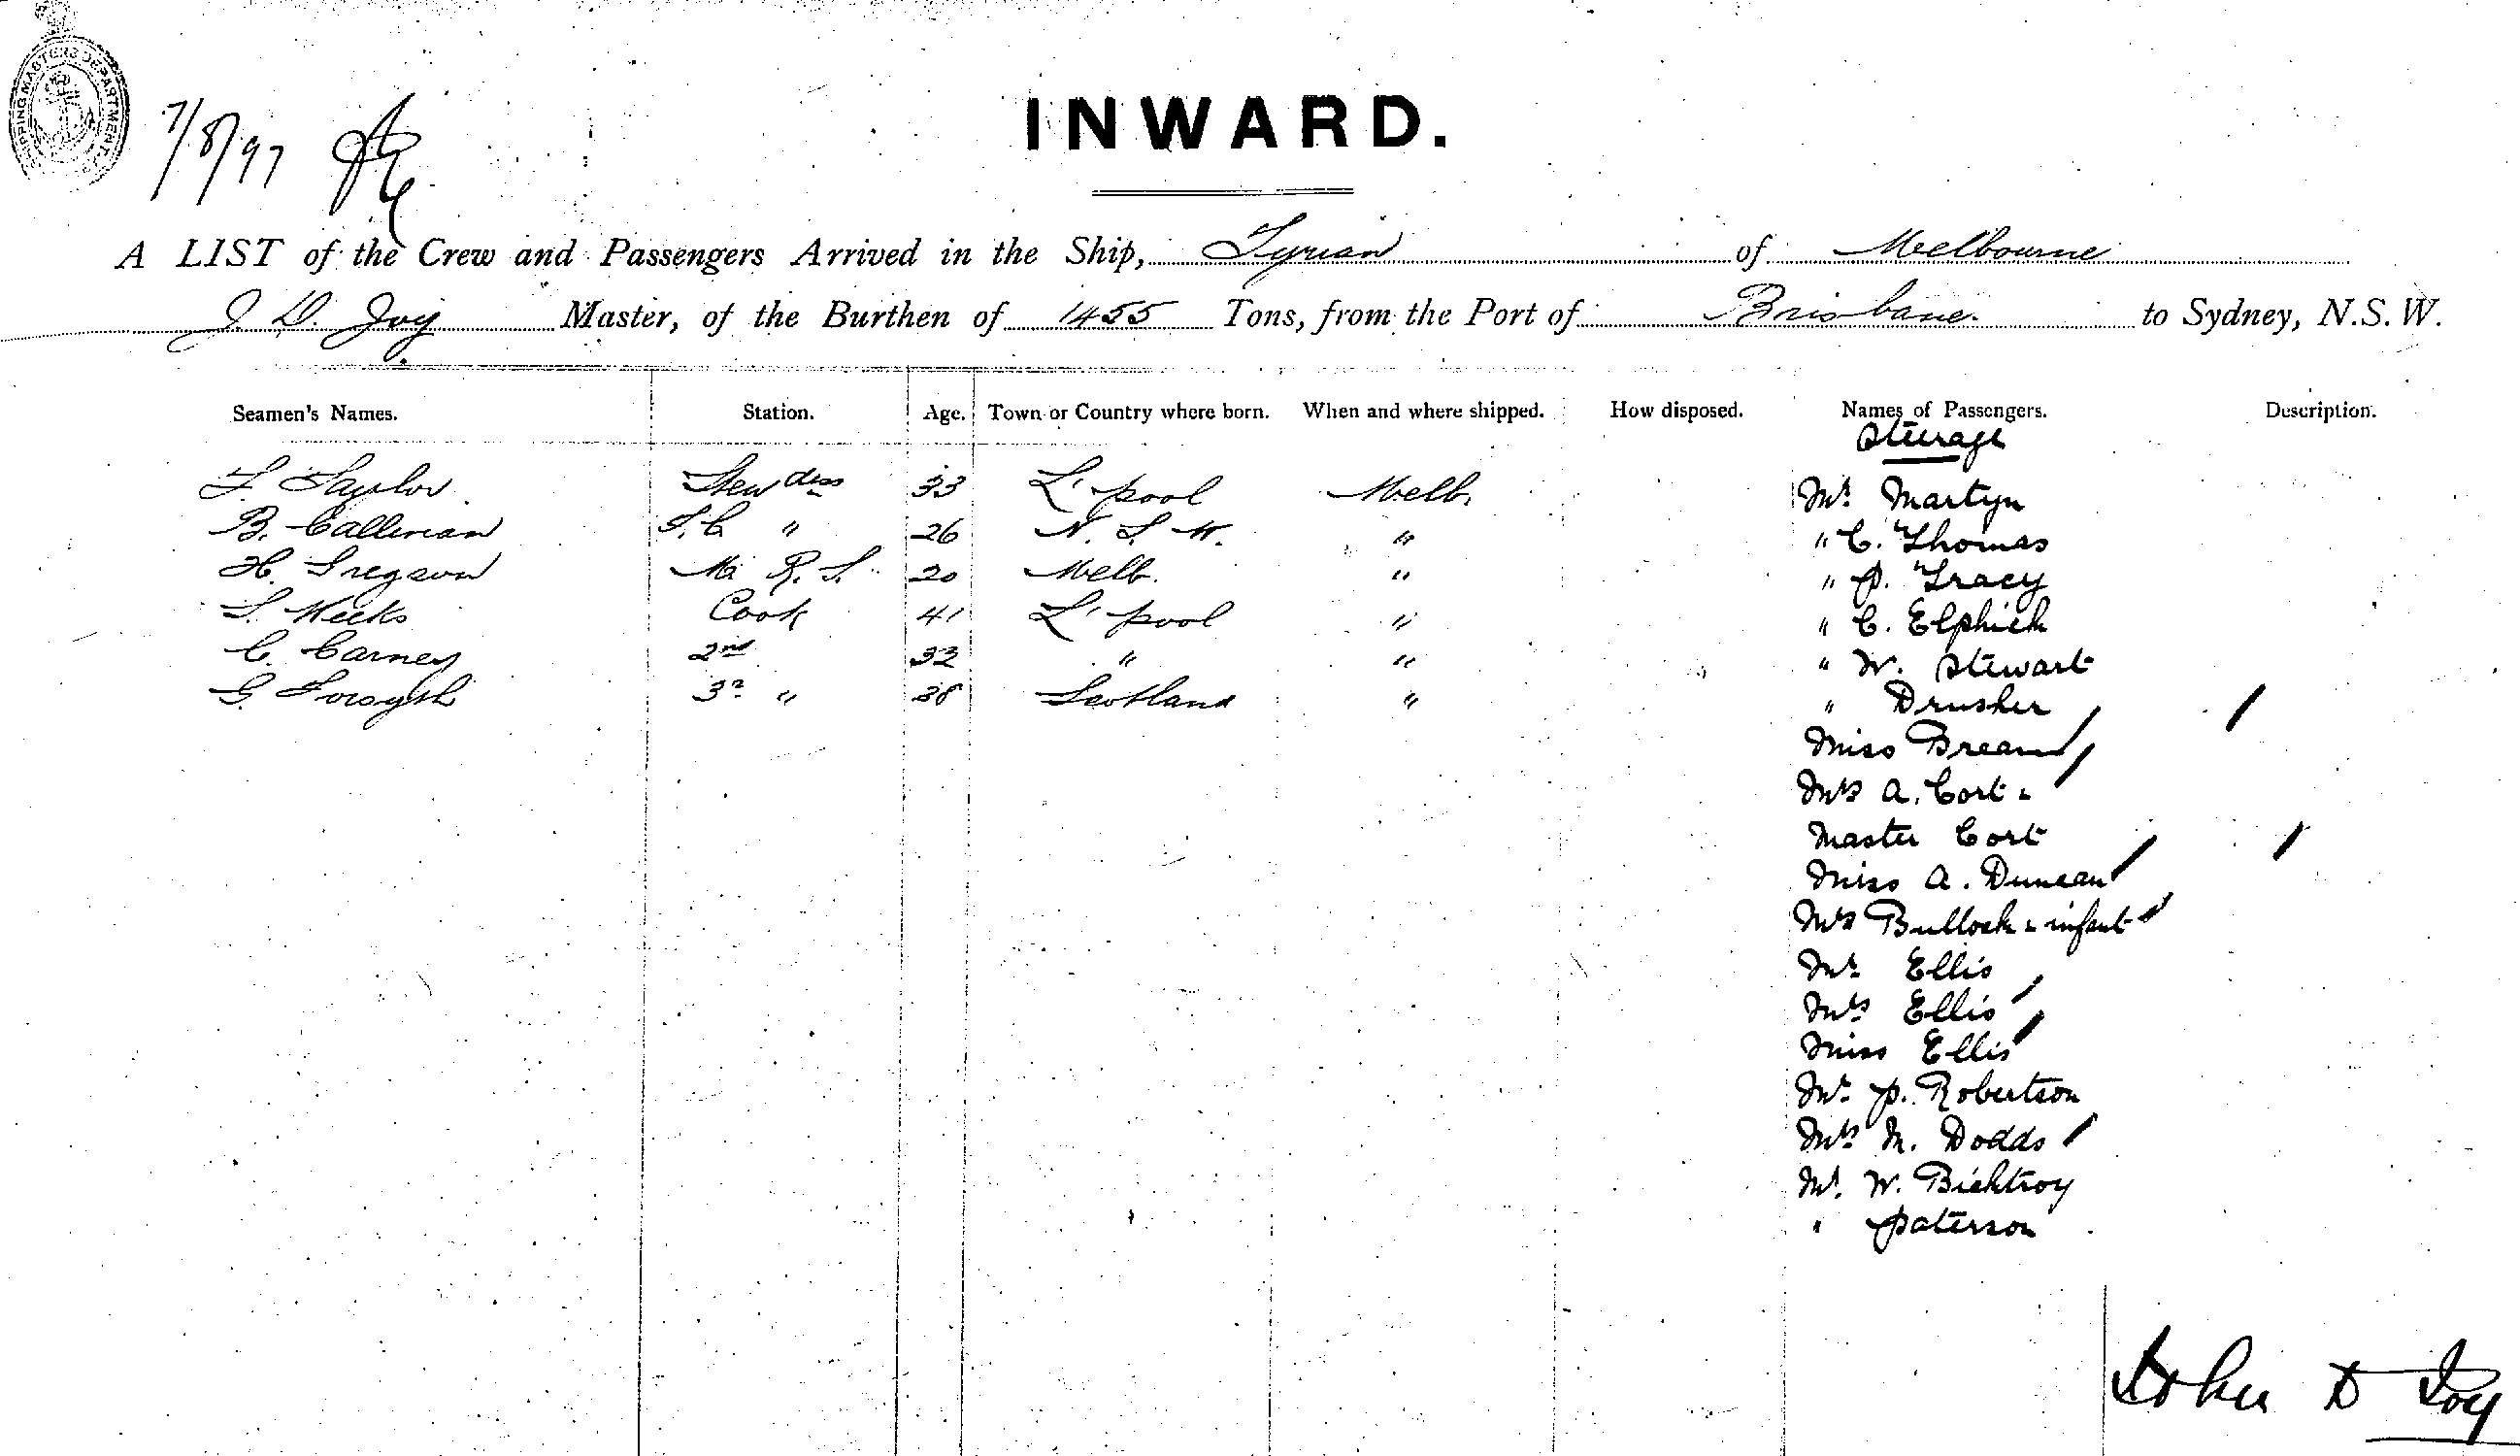 SHIPPING MASTERS DEPARTMENT
7/8/97
INWARD.
A LIST of the Crew and Passengers Arrived in the Ship, Tyrian of Melbourne
J. D. Joy Master, of the Burthen of 1455 Tons, from the Port of Brisbane to Sydney, N.S.W.
Seamen's Names. Station. Age. Town or Country where born. When and where shipped. How disposed. Names of Passengers. Description.
Steerage
Taylor Stewdess 33 L'pool Melb. Mr Martyn
B. Callinan S.C " 26 N. S. W. " " C. Thomas
H. Gregson R. S. 20 Melb. " " P. Tracy
Cook 41 L'pool " " C. Elphick
C. Carney 2nd 32 " " " W. Stewart
G. Forsyth 3rd " 38 Scotland " " Drusher
Miss
Mrs A. Cort &
Master Cort
Miss A. Duncan
Mrs Bullock & infant
Mr Ellis
Mrs Ellis
Miss Ellis
Mr P. Robertson
Mrs M. Dodds
Mr. W.
" Paterson
John D Joy